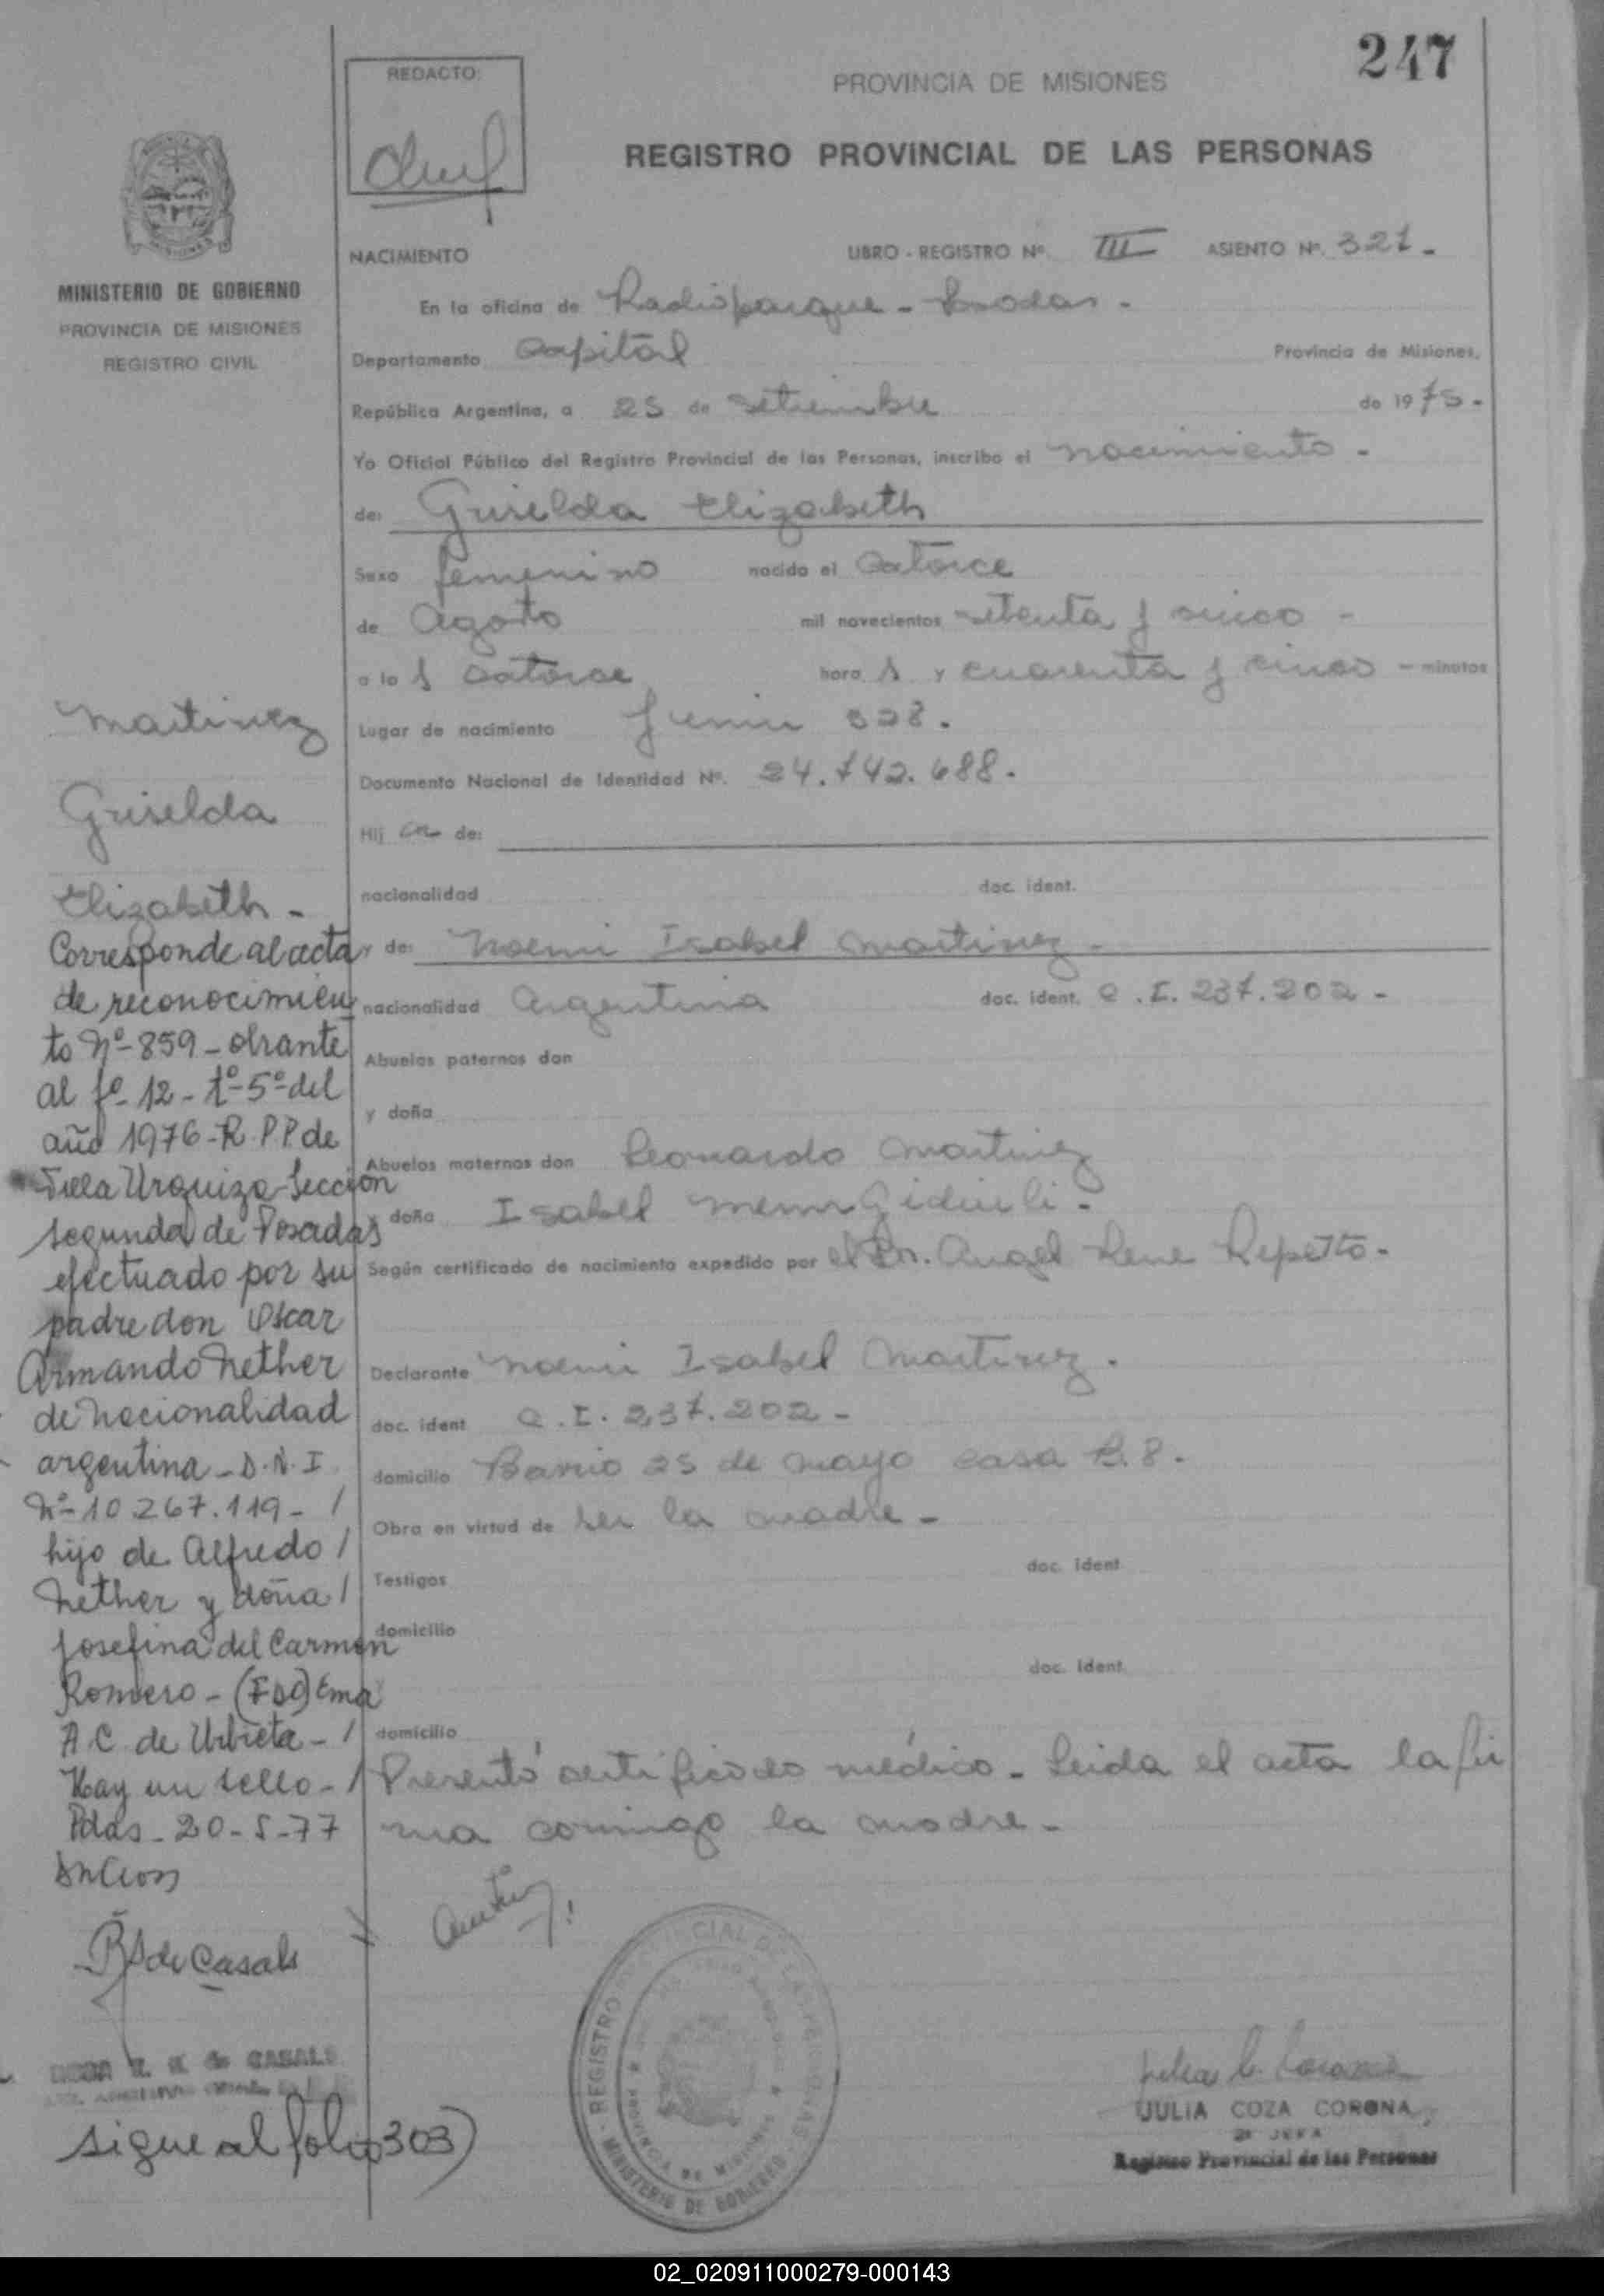 247
REDACTO:
PROVINCIA DE MISIONES
REGISTRO PROVINCIAL DE LAS PERSONAS
MINISTERIO DE GOBIERNO
PROVINCIA DE MISIONES
REGISTRO CIVIL
NACIMIENTO LIBRO - REGISTRO Nº III ASIENTO Nº. 321 -
En la oficina de Radioparque - Posadas -
Departamento Capital Provincia de Misiones,
República Argentina, a 25 de setiembre de 1975 -
Yo Oficial Público del Registro Provincial de las Personas, inscribo el nacimiento -
de: Griselda Elizabeth
Sexo femenino nacido el catorce
de Agosto mil novecientos setenta y cinco -
a la s catorce hora s y cuarenta y cinco - minutos
Lugar de nacimiento Junin
Documento Nacional de Identidad Nº. 24.742.688.
Hij a de:
nacionalidad doc. ident.
y de: Noemi Isabel Martinez -
nacionalidad Argentina doc. ident. C.I. 237.202 -
Abuelos paternos don
y doña
Abuelos maternos don Leonardo Martinez
y doña Isabel
Según certificado de nacimiento expedido por el Dr. Angel Rene Repetto -
Declarante Noemi Isabel Martinez .
doc. ident C.I. 237.202 -
domicilio Barrio 25 de mayo casa B.8.
Obra en virtud de ser la madre -
Testigos doc. ident
domicilio
doc. ident.
domicilio
Presentó certificado médico - Leida el acta la fir
ma conmigo la madre -
Martinez
Griselda
Elizabeth -
Corresponde al acta
de reconocimien
to Nº 859 - obrante
al fº 12 - tº 5º del
año 1976 - R.P.P. de
Villa Urquiza Sección
segunda de Posadas
efectuado por su
padre don Oscar
Armando Nether
de nacionalidad
argentina - D.N.I
Nº 10.267.119 - /
hijo de Alfredo /
Nether y doña /
Josefina del Carmen
Romero - (Fdo) Ema
A.C. de Urbieta - /
Hay un sello - /
Pdas - 20-5-77
de Casals
de CASALS
sigue al folio 303)
REGISTRO PROVINCIAL DE LAS PERSONAS
MINISTERIO DE GOBIERNO
PROVINCIA DE MISIONES
JULIA COZA CORONA
2ª JEFA
Registro Provincial de las Personas
02_020911000279-000143